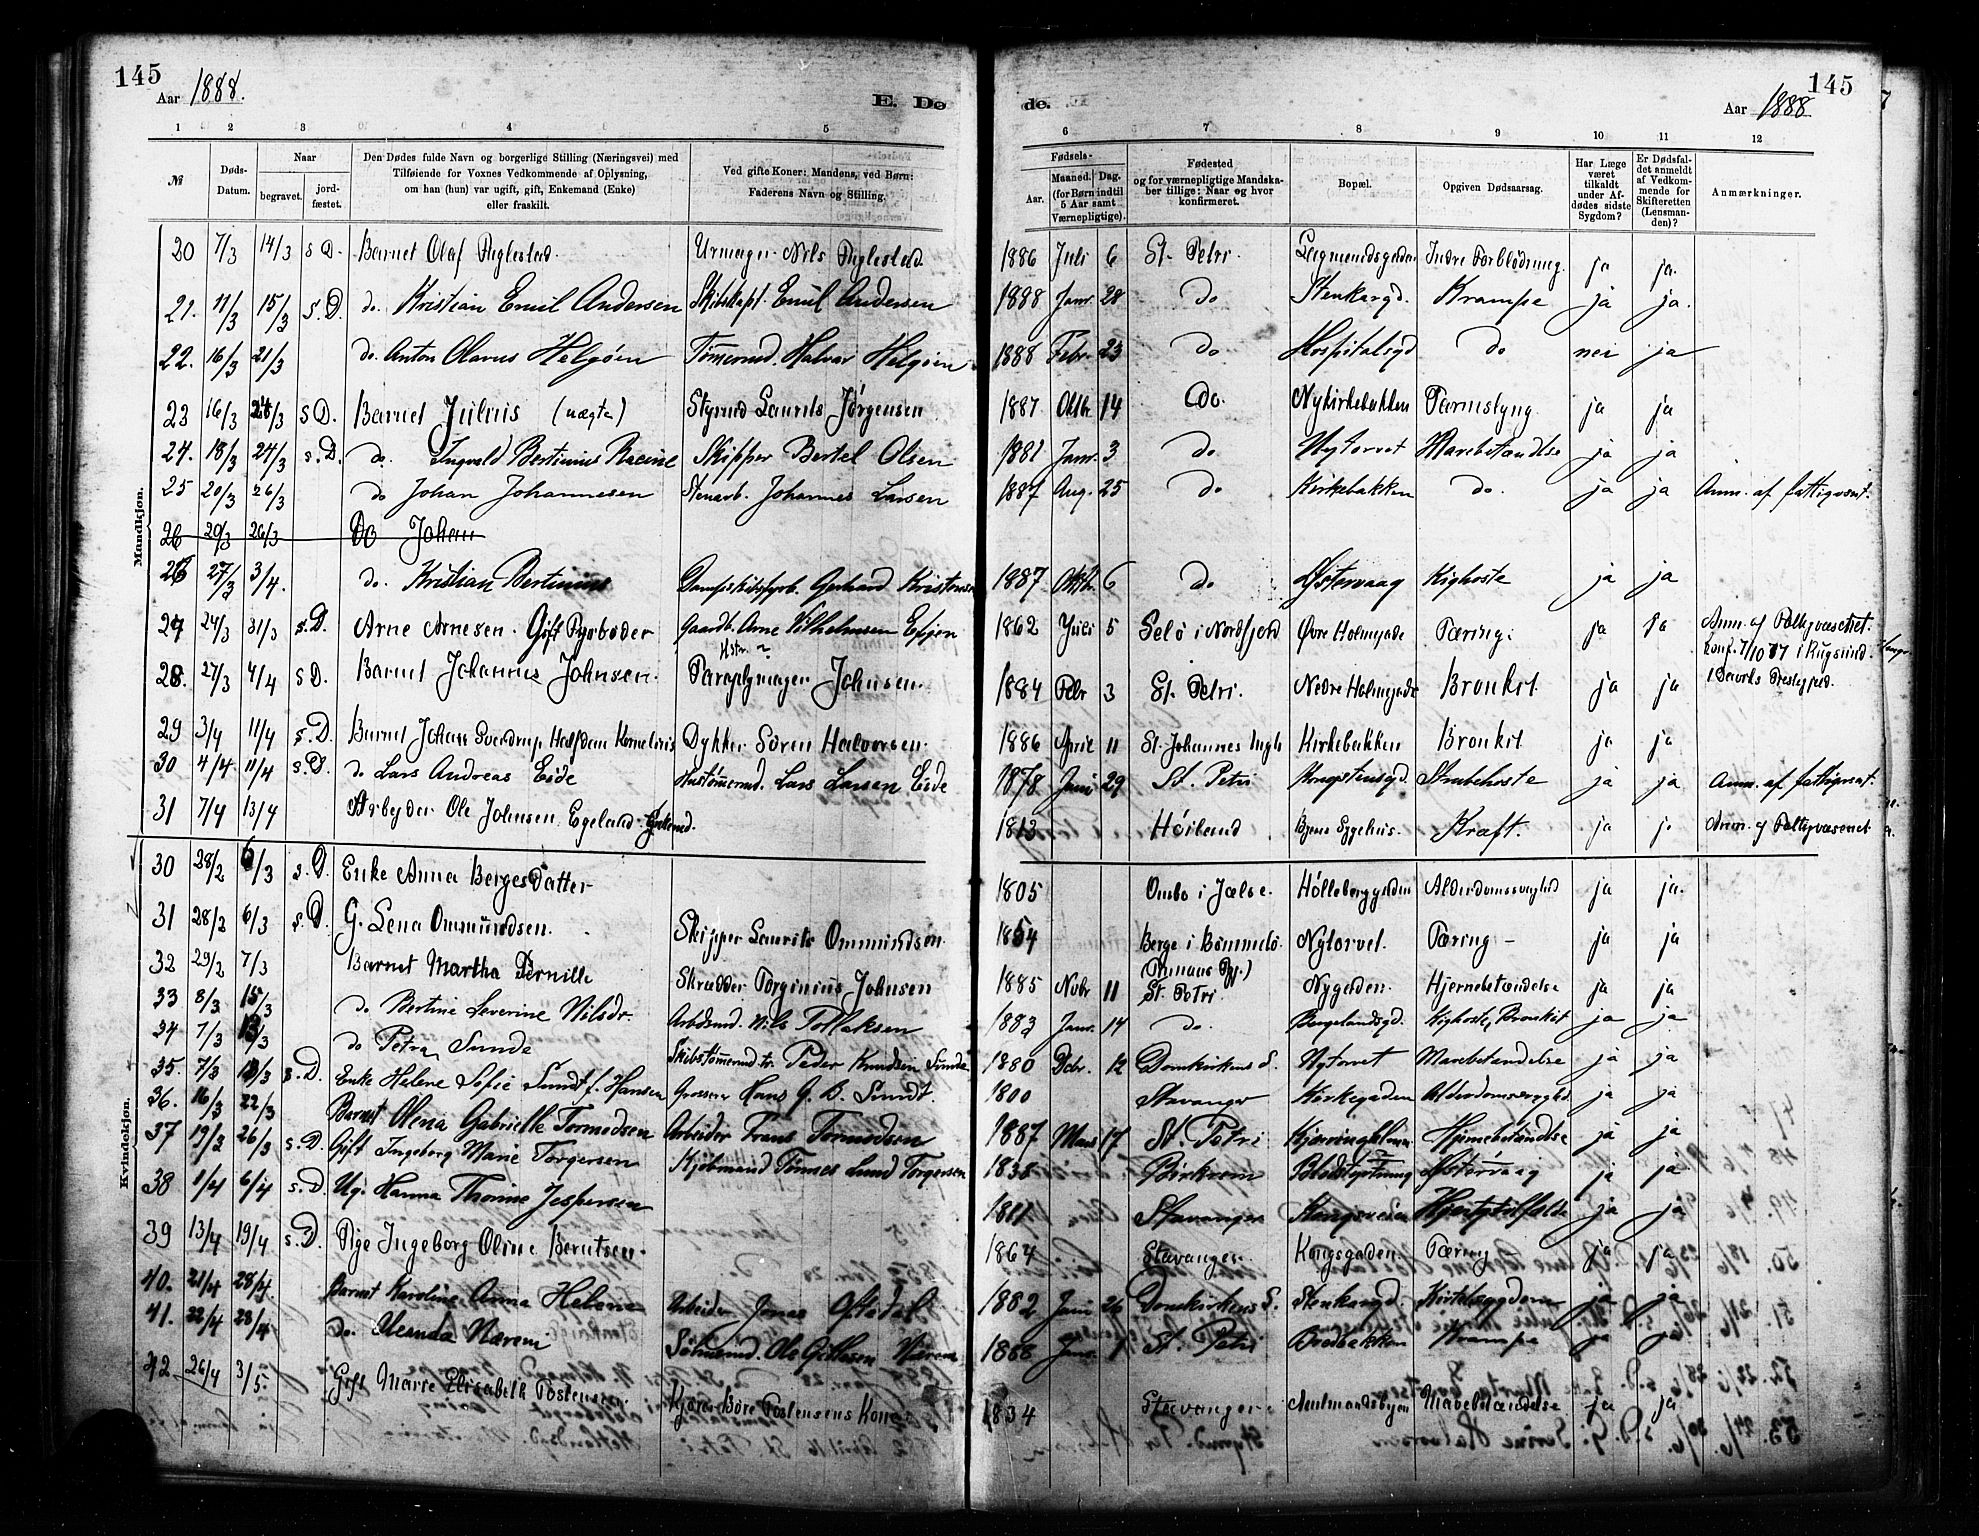 145
Aar 1888.
E. Dø
de.
145
Aar 1888
1 2 3 4 5 6 7 8 9 10 11 12
№ Døds-Datum. Naar begravet. jord-fæstet. Den Dødes fulde Navn og borgerlige Stilling (Næringsvei) med Tilføiende for Voxnes Vedkommende af Oplysning, om han (hun) var ugift, gift, Enkemand (Enke) eller fraskilt. Ved gifte Koner: Mandens, ved Børn: Faderens Navn og Stilling. Fødsels- Aar. Maaned. Dag. (for Børn indtil 5 Aar samt Værnepligtige). Fødested og for værnepligtige Mandskaber tillige: Naar og hvor konfirmeret. Bopæl. Opgiven Dødsaarsag. Har Læge været tilkaldt under Afdødes sidste Sygdom? Er Dødsfaldet anmeldt af Vedkommende for Skifteretten (Lensmanden)? Anmærkninger.
Mandkjøn.
20 7/3 14/3 s D. Barnet Olaf Urmager Nils 1886 Juli 6 St. Petri. Indre Forblødning. ja ja.
21. 11/3 15/3 s.D. do. Kristian Emil Andersen Skibskapt. Emil Andersen 1888 Janr. 28 Do Stenkargd. Krampe ja ja.
22. 16/3 21/3 do. Anton Olavus Helgøen Tømermd. Halvar Helgøen 1888 Febr. 23 Do Hospitalsgd do nei ja
23 16/3 s D. Barnet Julius (uægte) Styrmd Laurits Jörgensen 1887 Oktbr 14 do. Nykirkebakken Tarmslyng. ja ja
24. 18/3 24/3 s.D. do. Ingvald Bertinius Racine Skipper Bertel Olsen Janr. 3 do Nytorvet ja ja
25 20/3 26/3 do Johan Johannesen Stenarb. Johannes Larsen 1887 Aug. 25 do Kirkebakken do. ja ja Anm. af fattigvæst.
26 20/3 26/3 Do Johan
26 27/3 3/4. do. Kristian Bertinius Gerhard Kristensen 1887. Oktbr. 6 do Østervaag Kighoste ja ja
27 24/3 31/3 s.D. Arne Arnesen. Gift Gaardb. Arne Vilhelmsen 1862 Juli 5 Selö i Nordfjord Øvre Holmegade Tæring. ja ja Anm. af Fattigvæsenet. Konf. 7/10 77 i Rugsund
28. 27/3 4/4 s D. Barnet Johannes Johnsen. Paraplymager Johnsen. 1884 Febr 3 St. Petri. Nedre Holmegade Bronkit. ja ja
29 3/4 11/4 s.D. Barnet Johan Sverdrup Halfdan Kornelius Dykker Sören Halvorsen. 1886 April 11 St. Johannes Kirkebakken Bronkit ja ja
30 4/4 11/4 s.D. do Lars Andreas Eide Hustømermd. Lars Larsen Eide 1878 Juni 29 St. Petri Kongstensgd. Strubehoste ja ja Anm. af fattigvæst.
31 7/4 13/4 Arbejder Ole Johnsen Egeland. Enkemd. 1813 Höiland Byens Sygehus. Kræft. ja ja Anm. af Fattigvæsenet
Kvindekjøn.
30 28/2 6/3 s.D. Enke Anna Bergesdatter 1805 Ombo i Jælse. Alderdomssvaghed ja ja.
31 28/2 6/3 s.D. G. Lena Ommundsen. Skipper Laurits Ommundsen 1854 Berge i Bömmelö. Nytorvet. Tæring – ja ja
32 29/2 7/3 Barnet Martha Pernille Skrædder Torginius Johnsen 1885 Novbr 11 St. Petri. Nygaden. Hjernebetændelse ja ja
33 8/3 15/3 do Bertine Severine Nilsdr. Arbdsmd. Nils Tollaksen 1883 Janr. 14 do. Bergelandsgd. Kighoste, Bronkit ja ja
34 7/3 13/3 do Petra Sunde Skibstømermd. Peder Knudsen Sunde 1880 Dcbr. 12 Domkirkens S. Nytorvet Mavebetændelse ja ja
35. 7/3 13/3 s.D. Enke Helene Sofie Sundt f. Hansen Grosserer Hans G. B. Sundt. 1800 Stavanger Kirkegaden Alderdomssvaghed ja ja
36. 16/3 22/3 Barnet Olena Gabrielle Tormodsen Arbeider Frans Tormodsen 1887 Mars 17 St. Petri Hjernebetændelse ja ja
37 19/3 26/3 s.D. Gift Ingeborg Marie Torgersen Kjøbmand Tønnes Lund Torgersen 1838 Birkrem ja ja
38 1/4 6/4 s.D. Ug. Hanna Thorine Jespersen 1811 Stavanger ja ja
39 13/4 19/4 s.D. Pige Ingeborg Oline Berntsen. 1864 Stavanger. Kongsgaden. Tæring ja ja
40. 21/4 28/4. Barnet Karoline Anna Helene Arbeider Jonas Oftedal 1882 Juni 26 Domkirkens S. Stenkargd. ja ja
41. 22/4 28/4 do. Olenda Nærem Ole Gittlesen Nærem 1888 Janr. 1 St. Petri Bredbakken Krampe ja ja
42 26/4 3/5. Gift Marie Elisabeth Tostensen. Tostensens Kone 1834 Stavanger. ja ja